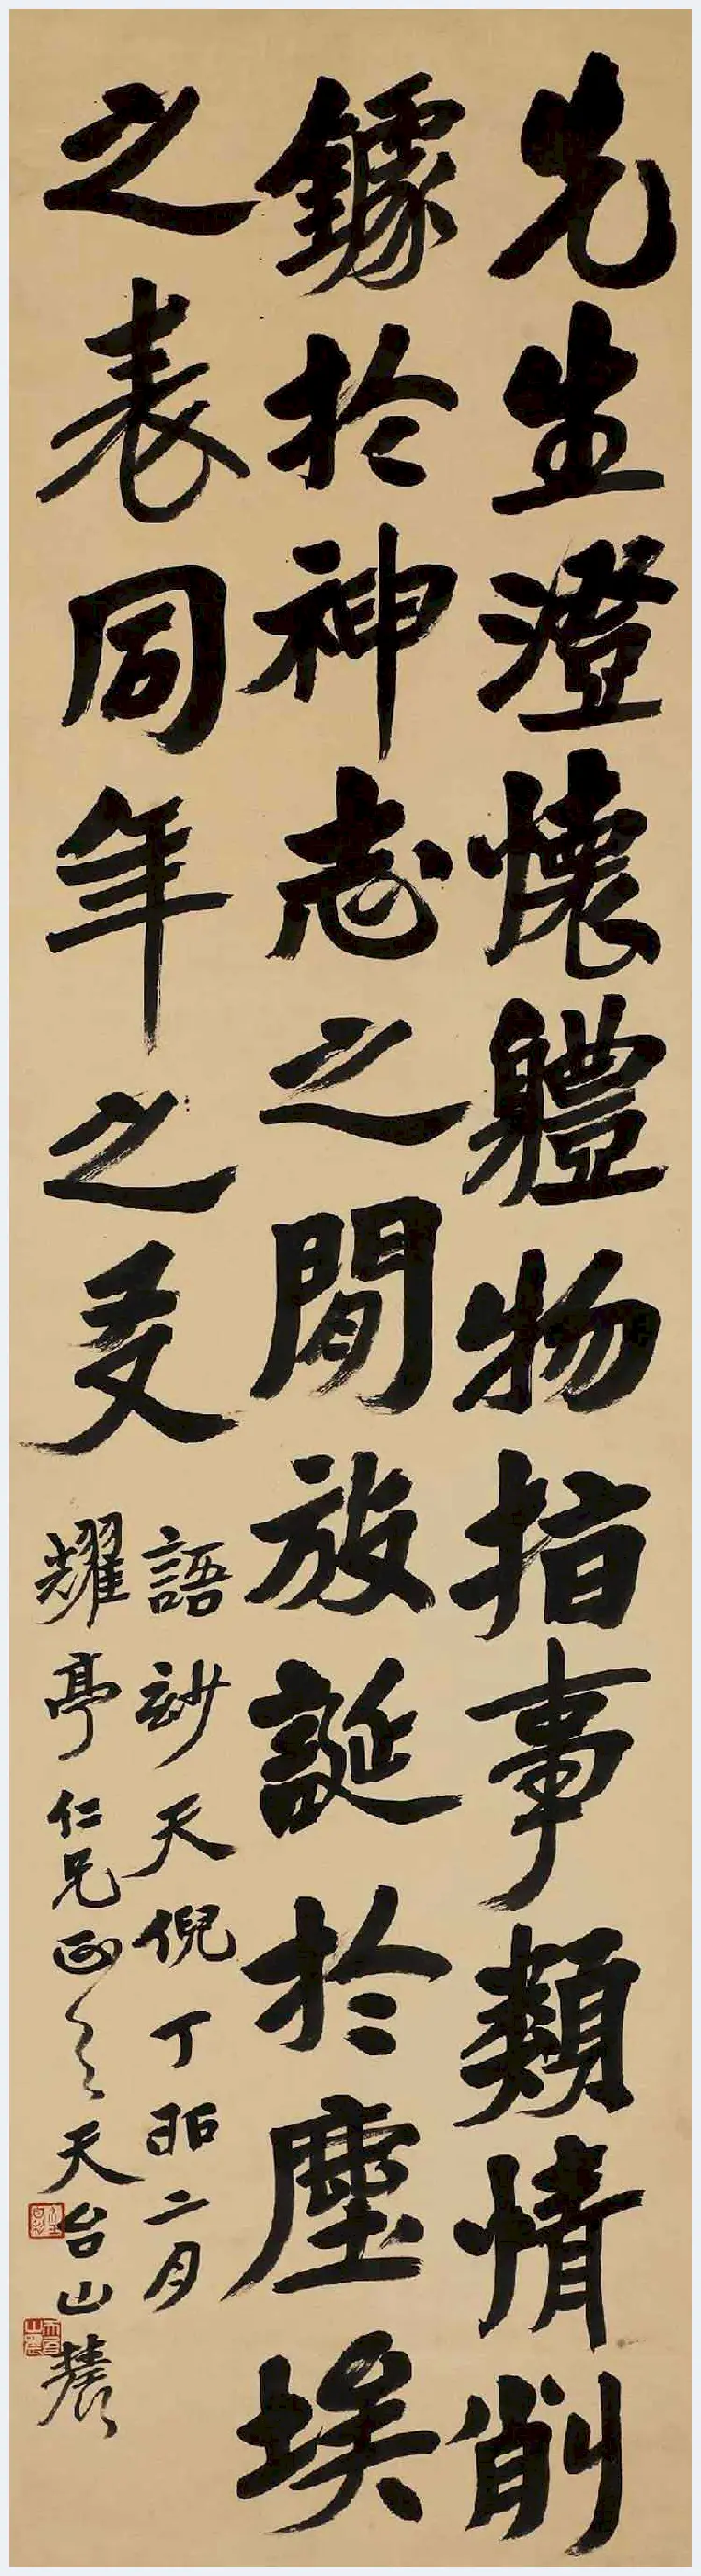 先生澄懷體物指事類情削
鐻於神志之間放誕於塵埃
之表同年之友
語妙天倪丁卯二月
耀亭仁兄正之天台山農